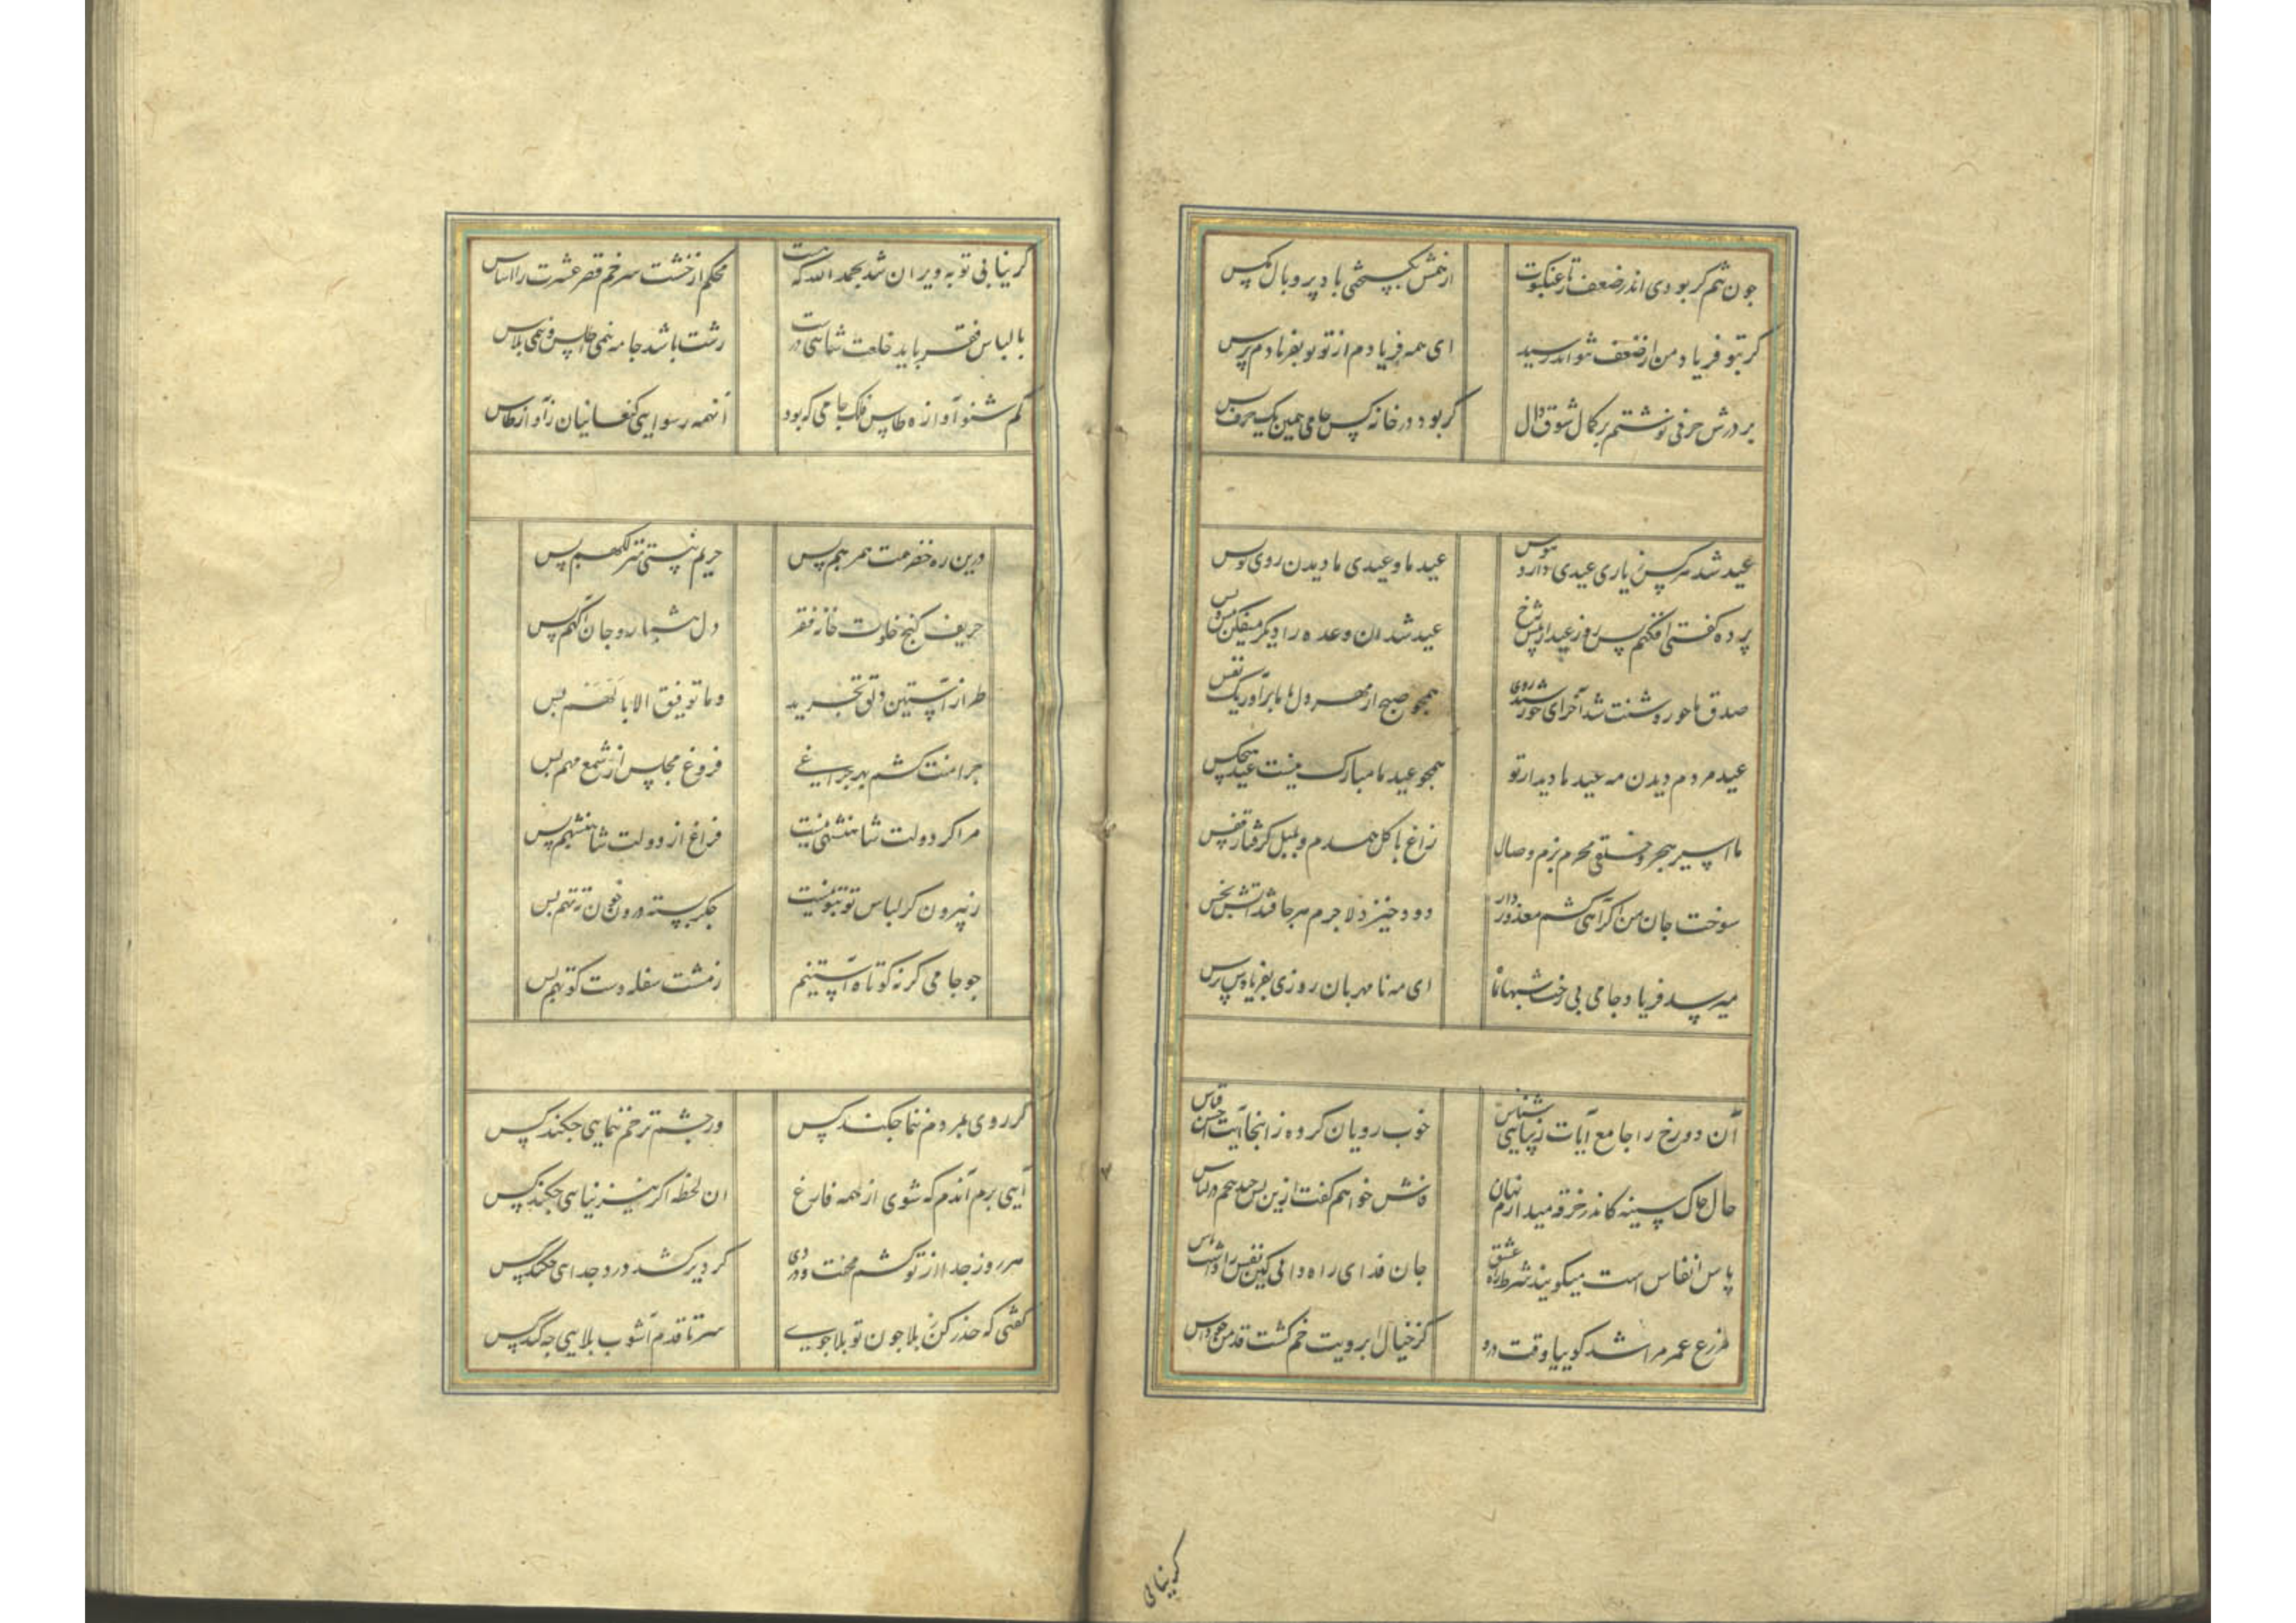 چون تنم گر بودی اندر ضعف تار عنکبوت ارتعش بگسیختی باد پر و بال مگس
گر بتو فریاد من از ضعف نتواند رسید ای همه فریادم از تو تو بفریادم برس
بر درش حرفی نوشتم بر کمال شوق دال گر بود در خانه کس جامی همین یک حرف بس
عید شد هر کس ز یاری عیدی دارد هوس عید ما و عیدی ما دیدن روی تو بس
پرده گفتی افکنم پس روز عید از پیش رخ عید شد آن وعده را دیگر میفکن پیش و پس
صدق ما چون روشنت شد آخر ای خورشید روی همچو صبح از مهر دل با ما برآور یک نفس
عید مردم دیدن مه عید ما دیدار تو همچو عید ما مبارک نیست عید هیچکس
ما اسیر هجر و خلقی محرم بزم وصال زاغ با گل همدم و بلبل گرفتار قفس
سوخت جان من گر آهی کشم معذور دار دود خیزد لاجرم هر جا فتد آتش بخس
میرسد فریاد جامی بی رخت شبها بماه ای مه نامهربان روزی بفریادش برس
آن دو رخ را جامع آیات زیبایی شناس خوب رویان کرده زانجا آیت حسن اقتباس
حال چاک سینه کاندر خرقه میدارم نهان فاش خواهم گفت ازین پس چند در لباس
پاس انفاس است میگویند شرط راه عشق جان فدای راه دانی کین نفس را داشت پاس
مزرع عمر مرا شد گوییا وقت درو کز خیال ابرویت خم گشت قد من چو داس
گر بنای
گر بنای توبه ویران شد بحمد الله که هست محکم از خشت سر خم قصر عشرت را اساس
با لباس فقر باید خلعت شاهی درست زشت باشد جامه نیمی اطلس و نیمی پلاس
کم شنو آوازه طاس فلک جامی که بود آن همه رسوایی کنعانیان ز آواز طاس
درین ره خضر همت همرهم بس حریم نیستی منزلگهم بس
حریف کنج خلوت خانه فقر دل شبها رو جان آگهم بس
طراز آستین دلق تجرید وما توفیق الا باللهم بس
چرا منت کشم بهر چراغی فروغ مجلس از شمع مهم بس
مرا گر دولت شاهنشهی نیست فراغ از دولت شاهنشهم بس
ز بیرون گر لباس تو بتو نیست جگر بسته درون خون ته بتهم بس
چو جامی گر نه کوتاه آستینم ز مشت سفله دست کوتهم بس
گر روی بمردم ننما چکند کس ور چشم ترحم نگشایی چکند کس
آیی برم آندم که شوی از همه فارغ آن لحظه اگر نیز نیایی چکند کس
هر روز جدا از تو کشم محنت و دردی گر دیر کشد درد جدایی چکند کس
گفتی که حذر کن ز بلا چون تو بلا جوی سر تا قدم آشوب بلایی چکند کس